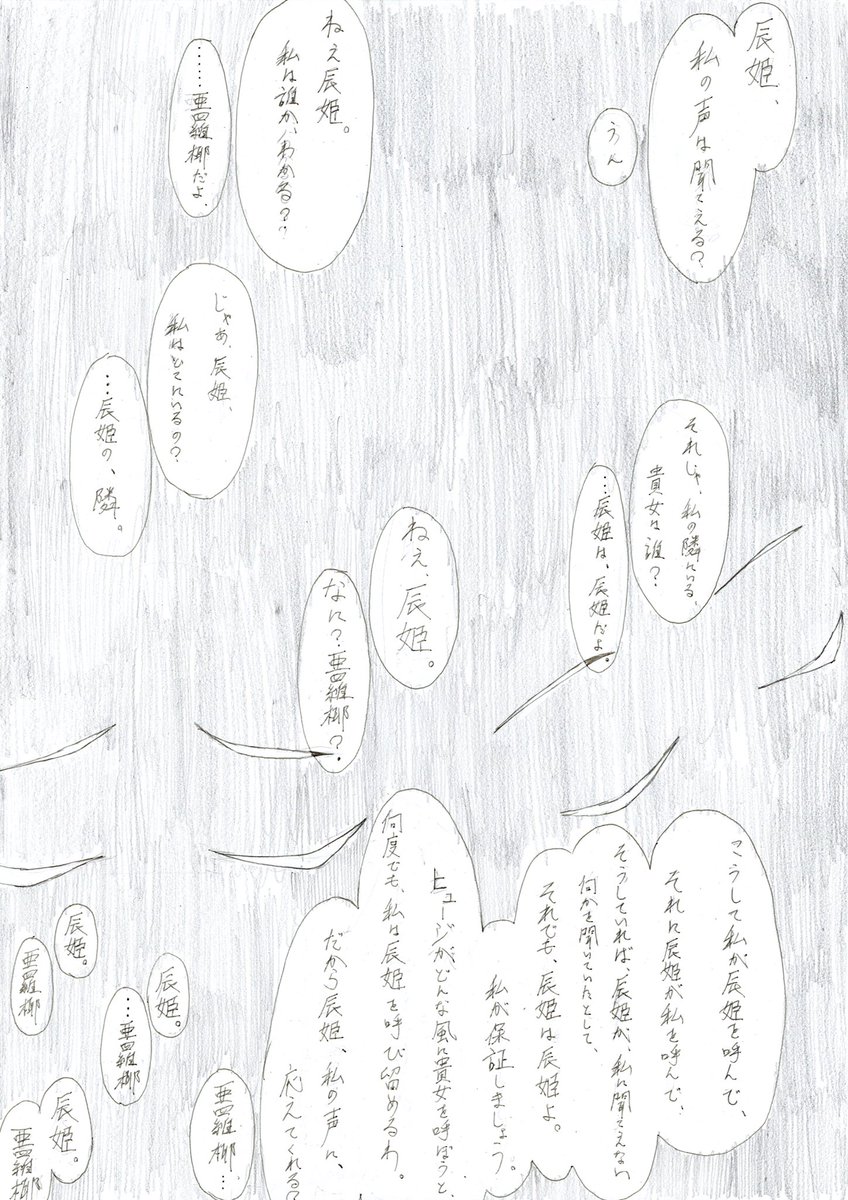 辰姫、
私の声は聞こえる?
うん
ねえ辰姫。
私は誰か、わかる?
……亜羅椰だよ。
じゃあ、辰姫、
私はどこにいるの?
…辰姫の、隣。
それじゃ、私の隣にいる、
貴女は誰?
…辰姫は、辰姫だよ。
ねえ、辰姫。
なに?亜羅椰?
こうして私が辰姫を呼んで、
それに辰姫が私を呼んで、
そうしていれば、辰姫が、私に聞こえない
何かを聞いていたとして、
それでも、辰姫は辰姫よ。
私が保証しましょう。
ヒュージがどんな風に貴女を呼ぼうと、
何度でも、私は辰姫を呼び留めるわ。
だから辰姫、私の声に、
応えてくれる?
亜羅椰…
辰姫。
…亜羅椰
辰姫。
亜羅椰
辰姫。
亜羅椰